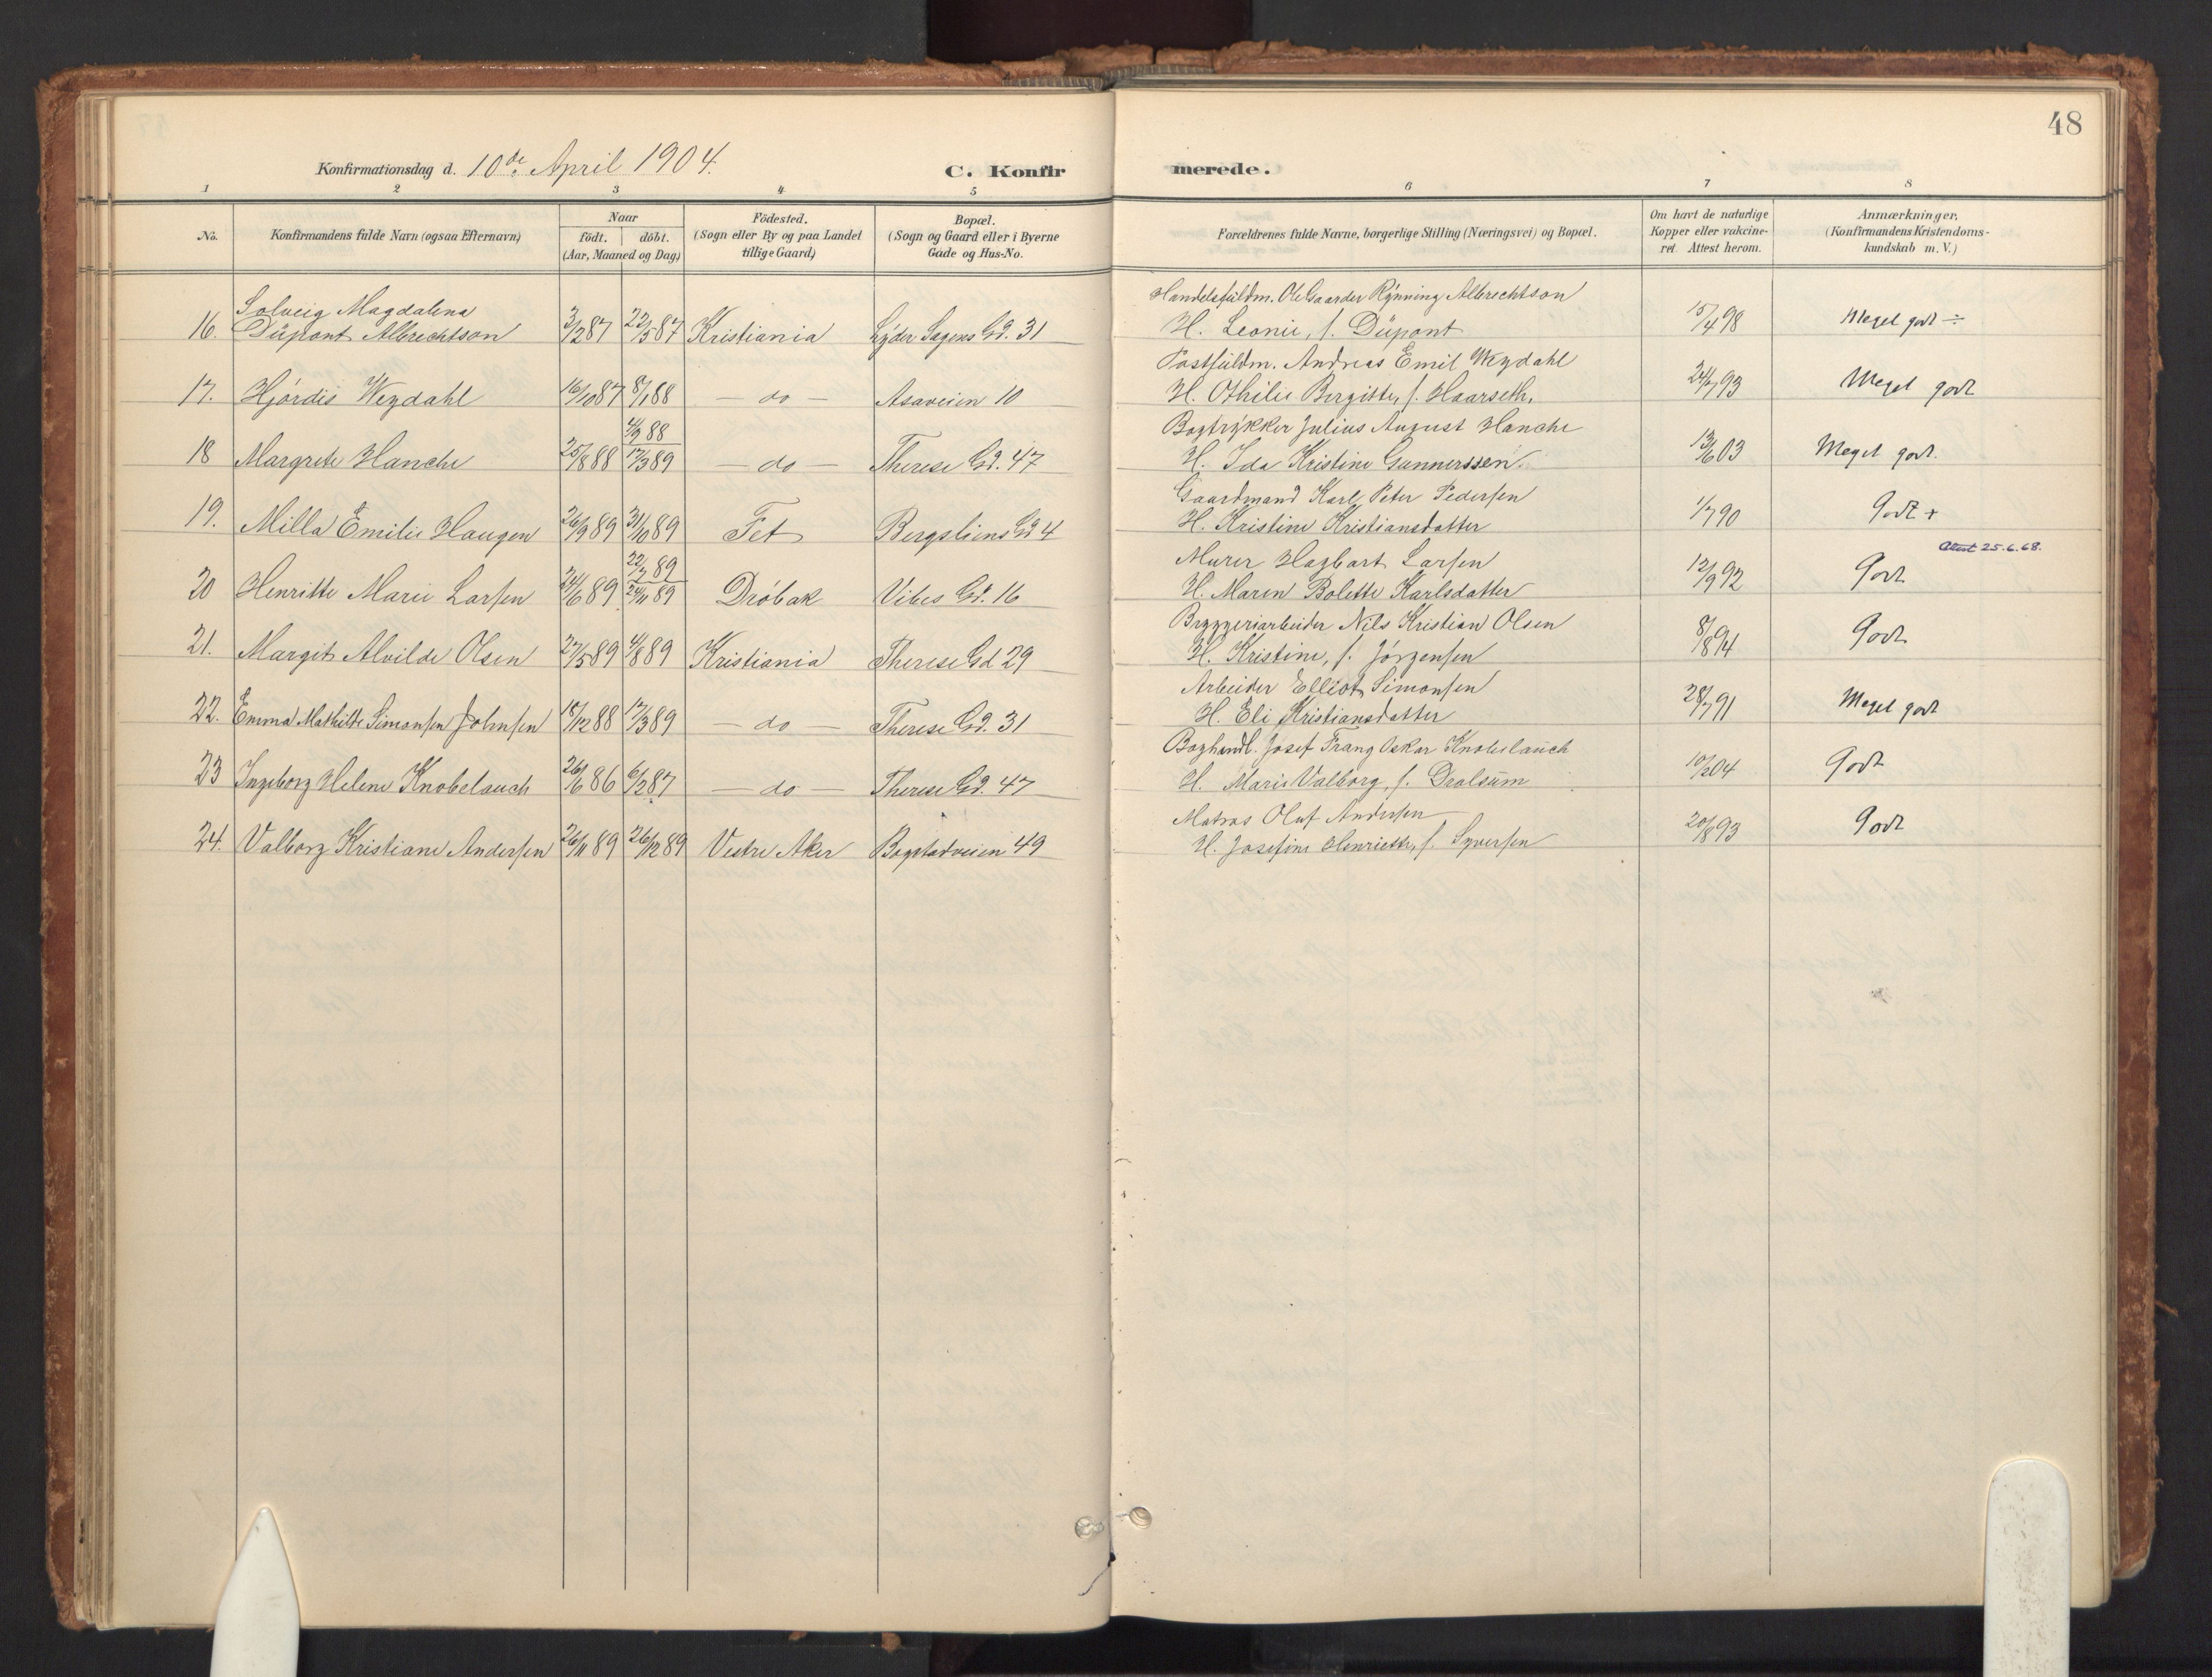 48
Konfirmationsdag d. 10de April 1904.
C. Konfir merede.
1 2 3 4 5 6 7 8
No.
Konfirmandens fulde Navn (ogsaa Efternavn)
Naar
födt. döbt.
(Aar, Maaned og Dag)
Födested.
(Sogn eller By og paa Landet
tillige Gaard)
Bopæl.
(Sogn og Gaard eller i Byerne
Gade og Hus-No.
Forældrenes fulde Navne, borgerlige Stilling (Næringsvei) og Bopæl.
Om havt de naturlige
Kopper eller vakcine-
ret. Attest herom.
Anmærkninger.
(Konfirmandens Kristendoms-
kundskab m. V.)
Solveig Magdalena Handelsfuldm. Ole Gaarder Rynning Albrechtson
16. Düpont Albrechtson 3/2 87 22/5 87 Kristiania Lyder Sagens Gd. 31 H. Leonie, f. Düpont 15/4 98 Meget godt ÷
Postfuldm. Andreas Emil Weydahl
17. Hjördis Weydahl 16/10 87 8/1 88 — do — Asaveien 10 H. Othilie Bergitte, f. Haarseth. 24/7 93 Meget godt
4/9 88 Bogtrykker Julius August Hanche
18 Margrete Hanche 25/8 88 17/3 89 — do — Therese Gd. 47 H. Ida Kristine Gunnerssen. 13/6 03 Meget godt.
Gaardmand Karl Peter Pedersen
19. Milla Emilie Haugen 26/9 89 31/10 89 Fet Bergsliens Gd 4 H. Kristine Kristiansdatter 1/7 90 Godt +
Attest 25.6.68.
22/7 89 Murer Hagbart Larsen
20 Henritte Marie Larsen 24/6 89 24/11 89 Dröbak Vibes Gd. 16 H. Maren Bolette Karlsdatter 12/9 92 Godt
Bryggeriarbeider Nils Kristian Olsen
21. Margit Alvilde Olsen 27/5 89 4/8 89 Kristiania Therese Gd 29 H. Kristine, f. Jörgensen 8/8 94 Godt
Arbeider Elliot Simonsen
22. Emma Mathilde Simonsen Johnsen 18/12 88 17/3 89 — do — Therese Gd. 31 H. Eli Kristiansdatter 28/7 91 Meget godt
Boghandl. Josef Franz Oskar Knobelauch
23 Ingeborg Helene Knobelauch 26/6 86 6/2 87 — do — Therese Gd. 47 H. Marie Valborg, f. Dralsum 10/2 04 Godt
Matros Oluf Andersen
24. Valborg Kristiane Andersen 26/11 89 26/12 89 Vestre Aker Bogstadveien 49 H. Josefine Henriette, f. Syversen 20/8 93 Godt